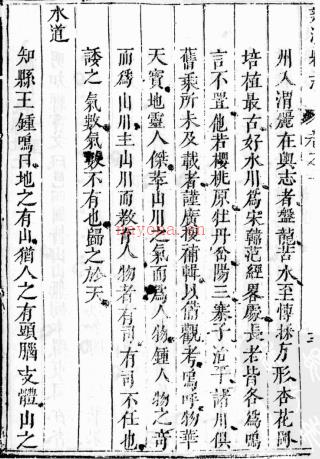 縣志 卷之一
州人謂麗在輿志者盤龍吉水至博採方形杏花岡
培植最古好水川爲宋韓范經畧處長老皆各爲鳴
言不置他若櫻桃原牡丹峁陽三寨子沿平諸川俱
舊乘所未及載者謹廣搜補輯以備觀考嗚呼物華
天寶地靈人傑萃山川之氣而爲人物鍾人物之奇
而爲山川主山川而教育人物者有司有司不任也
諉之氣數氣數不有也歸之於天
水道
知縣王鍾鳴曰地之有山猶人之有頭腦支體山之
nayona.cn